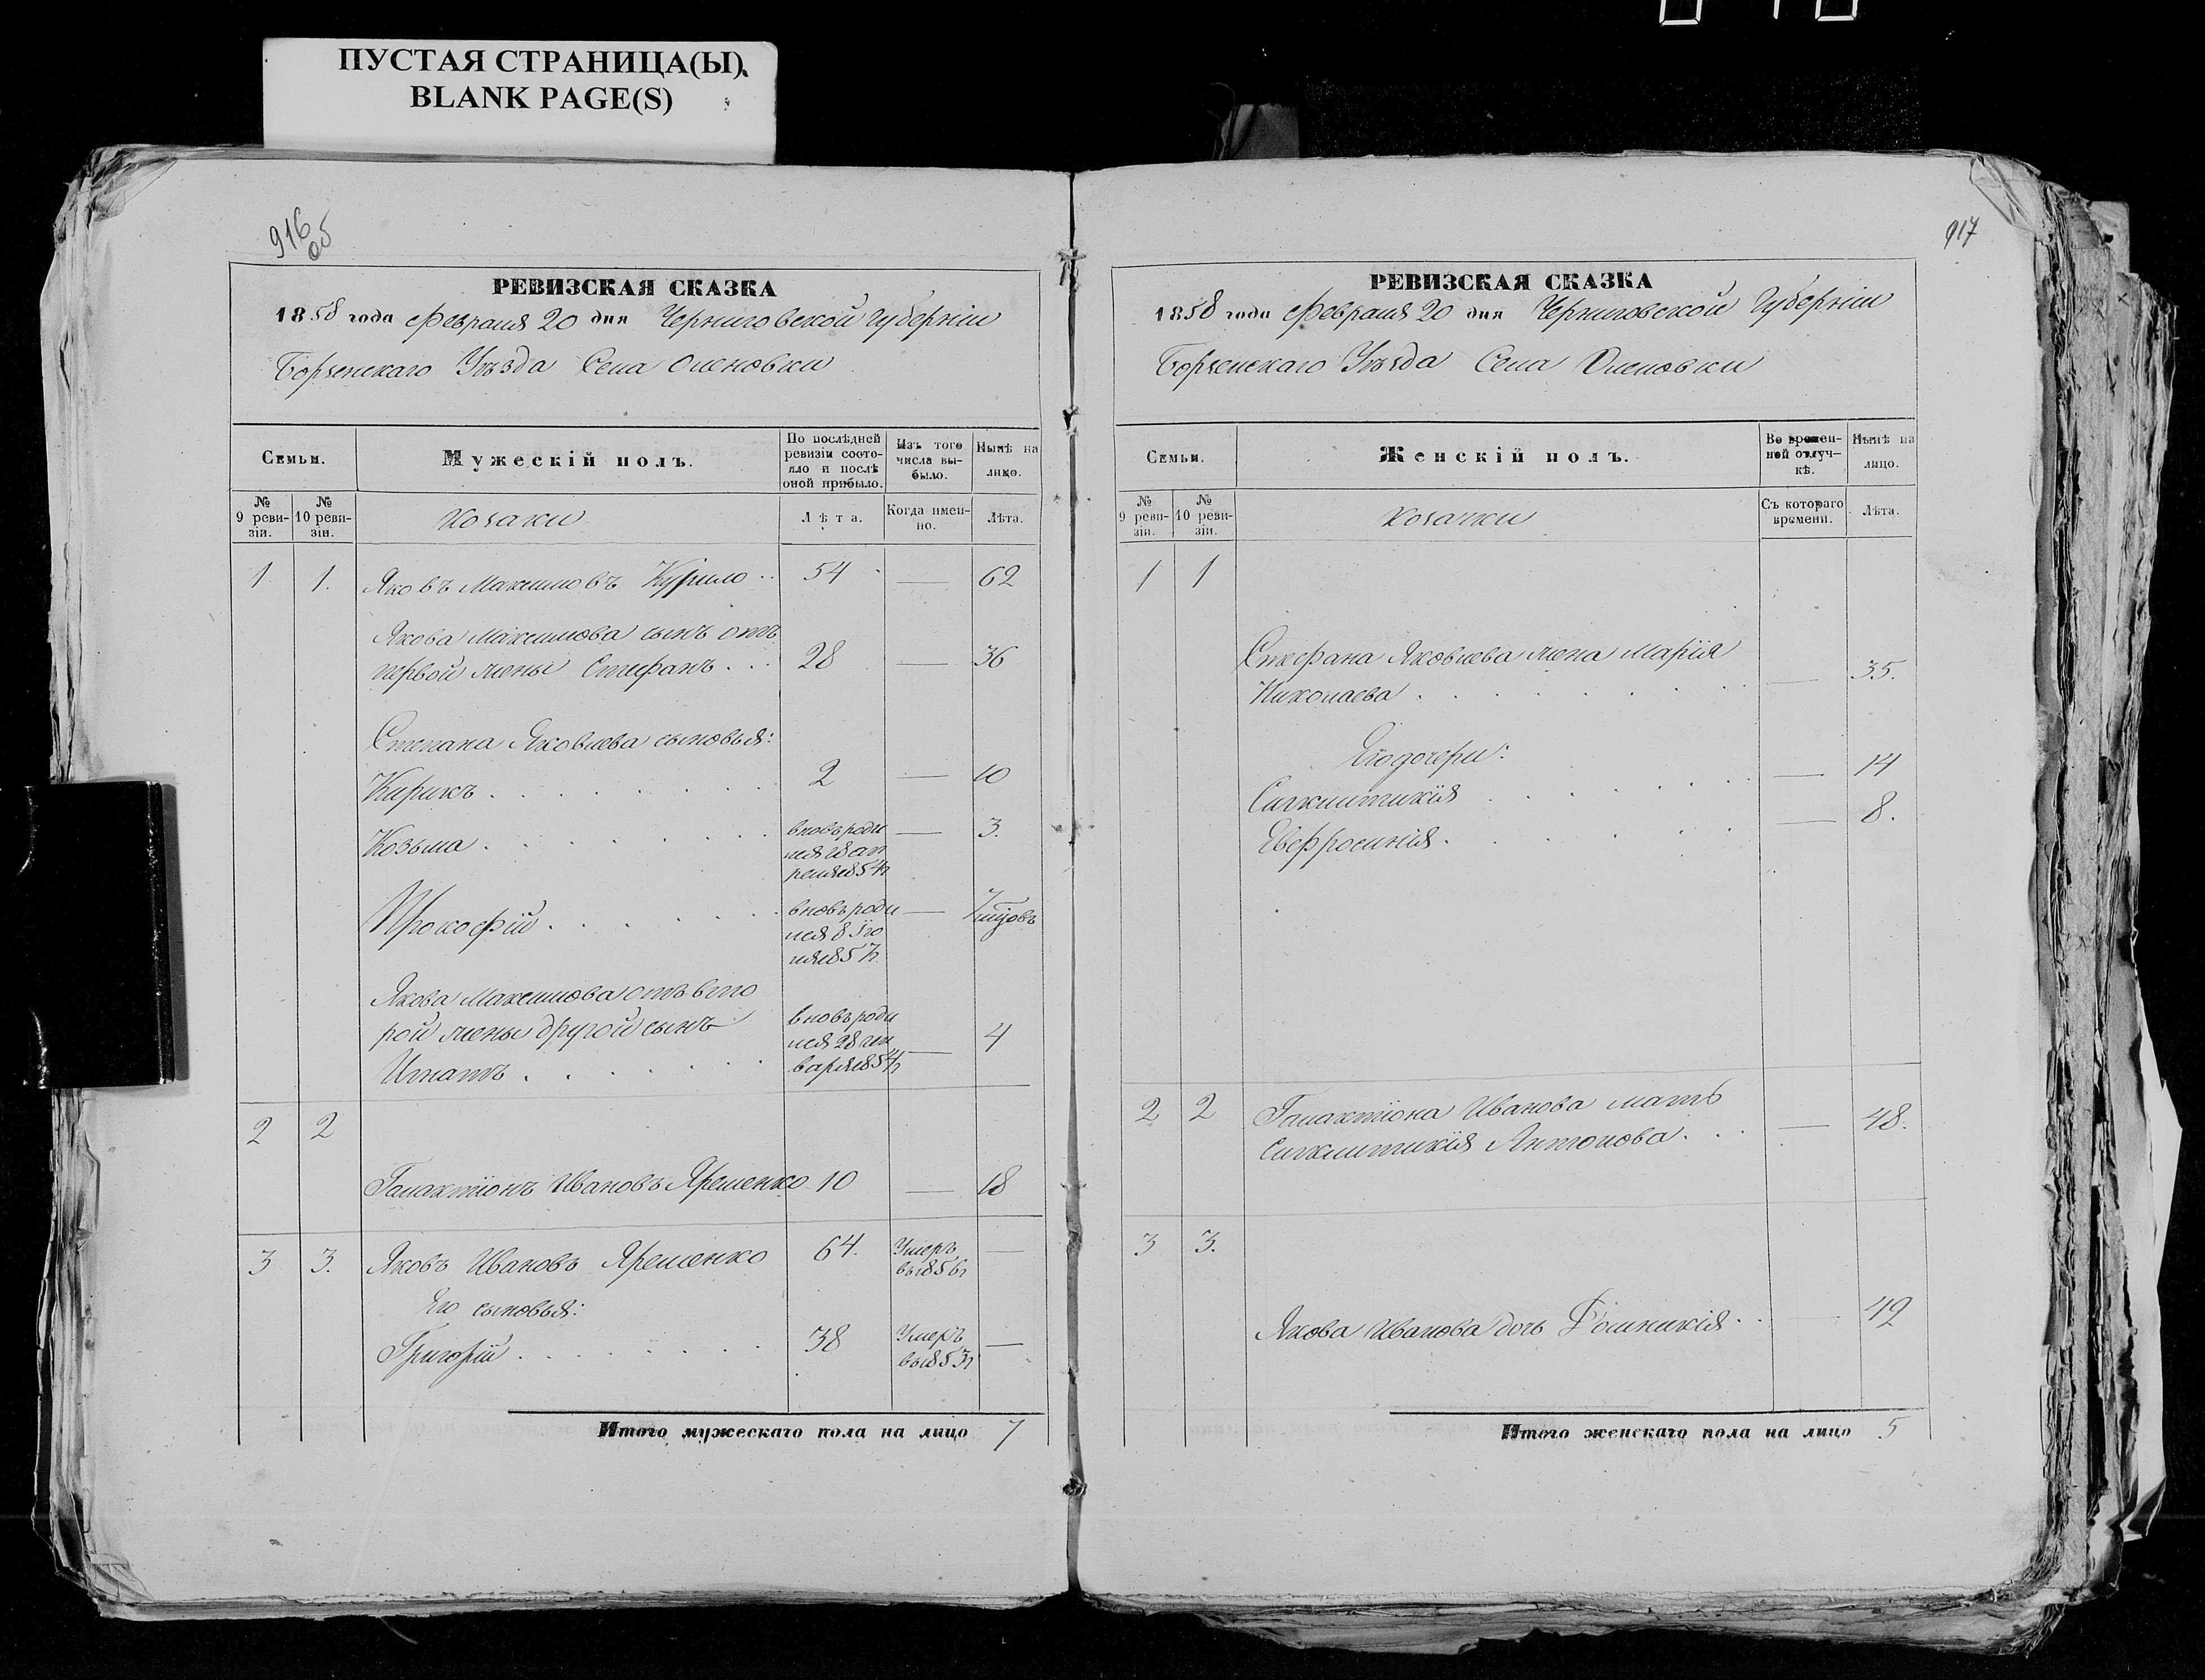 ПУСТАЯ СТРАНИЦА(Ы)
BLANK PAGE(S)
916
об
РЕВИЗСКАЯ СКАЗКА
1858 года Февраля 20 дня Черниговской Губерніи
Борзенскаго Уѣзда Села Оленовки
Семьи.
Мужескій полъ.
По послѣдней ревизіи состояло и послѣ оной прибыло.
Изъ того числа выбыло.
Нынѣ на лицо.
№ 9 ревизіи.
№ 10 ревизіи.
Козаки
Лѣта.
Когда именно.
Лѣта.
1 1. Яковъ Максимовъ Курило .. 54 — 62
Якова Максимова сынъ отъ
первой жены Стефанъ . . . 28 — 36
Степана Яковлева сыновья:
Кирикъ . . . . . . . . 2 — 10
Козьма . . . . . . . вновь роди — 3.
лся 28 ап
реля 1854 г
Прокофій . . . . . . вновь роди —
лся 8 Ію
ля 1857 г
Якова Максимова отъ вто
рой жены другой сынъ вновь роди
лся 28 ян — 4
Игнатъ . . . . . . . варя 1854 г
2 2
Галактіонъ Ивановъ Яременко 10 — 18
3 3. Яковъ Ивановъ Яременко 64. Умеръ —
въ 1856 г
Его сыновья:
Григорій . . . . . . . . 38 Умеръ —
въ 1853 г
Итого мужескаго пола на лицо 7
917
РЕВИЗСКАЯ СКАЗКА
1858 года Февраля 20 дня Черниговской Губерніи
Борзенскаго Уѣзда Села Оленовки
Семьи.
Женскій полъ.
Во временной отлучкѣ.
Нынѣ на лицо.
№ 9 ревизіи.
№ 10 ревизіи.
Козачки
Съ котораго времени.
Лѣта.
1 1
Стефана Яковлева жена Марія
Николаева . . . . . . . . — 35.
Его дочери:
Сигклитикія . . . . . . — 14
Евфросинія . . . . . — 8.
2 2 Галактіона Иванова мать
Сигклитикія Антонова . . . — 48.
3 3.
Якова Иванова дочь Домникія .. — 49
Итого женскаго пола на лицо 5